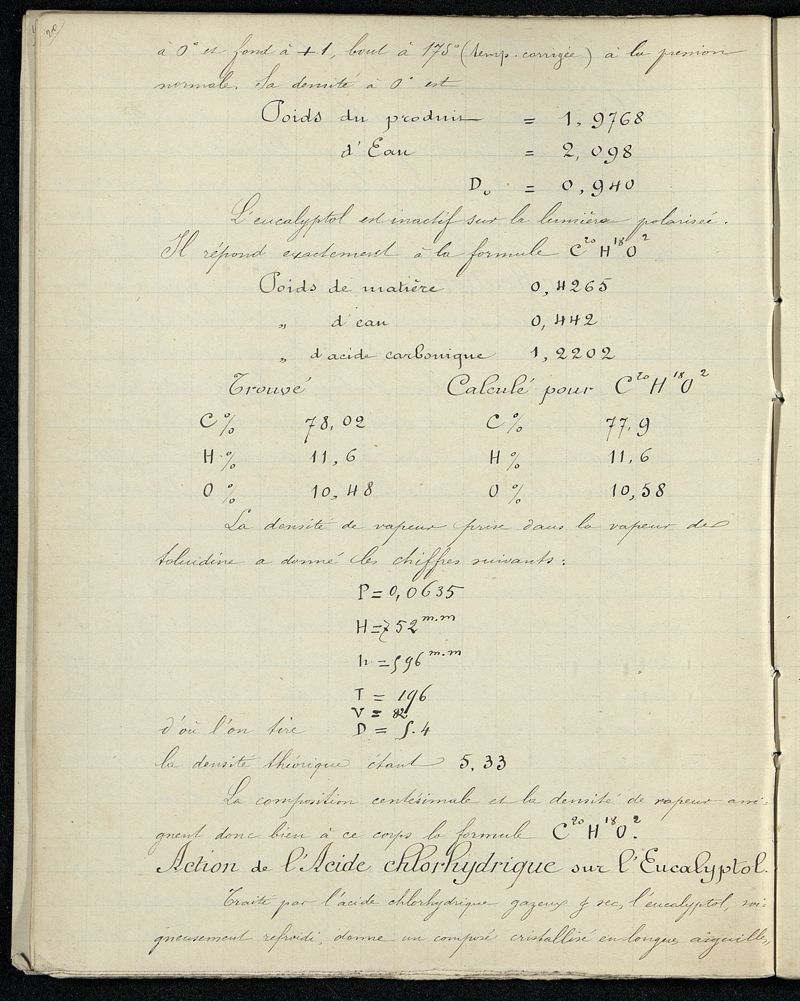 à 0° et fond à +1, bout à 175° (temp. corrigée) à la pression
normale. Sa densité à 0° est
Poids du produit = 1,9768
d'Eau = 2,098
D₀ = 0,940
L'eucalyptol est inactif sur la lumière polarisée.
Il répond exactement à la formule C²⁰H¹⁸O²
Poids de matière 0,4265
„ d'eau 0,442
„ d'acide carbonique 1,2202
Trouvé Calculé pour C²⁰H¹⁸O²
C % 78,02 C % 77,9
H % 11,6 H % 11,6
O % 10,48 O % 10,58
La densité de vapeur prise dans la vapeur de
toluidine a donné les chiffres suivants:
P = 0,0635
H = 752 m.m
h = 596 m.m
T = 196
V = 82
d'où l'on tire D = 5.4
la densité théorique étant 5,33
La composition centésimale et la densité de vapeur assi-
gnent donc bien à ce corps la formule C²⁰H¹⁸O².
Action de l'Acide chlorhydrique sur l'Eucalyptol.
Traité par l'acide chlorhydrique gazeux & sec, l'eucalyptol, soi-
gneusement refroidi, donne un composé cristallisé en longues aiguilles,